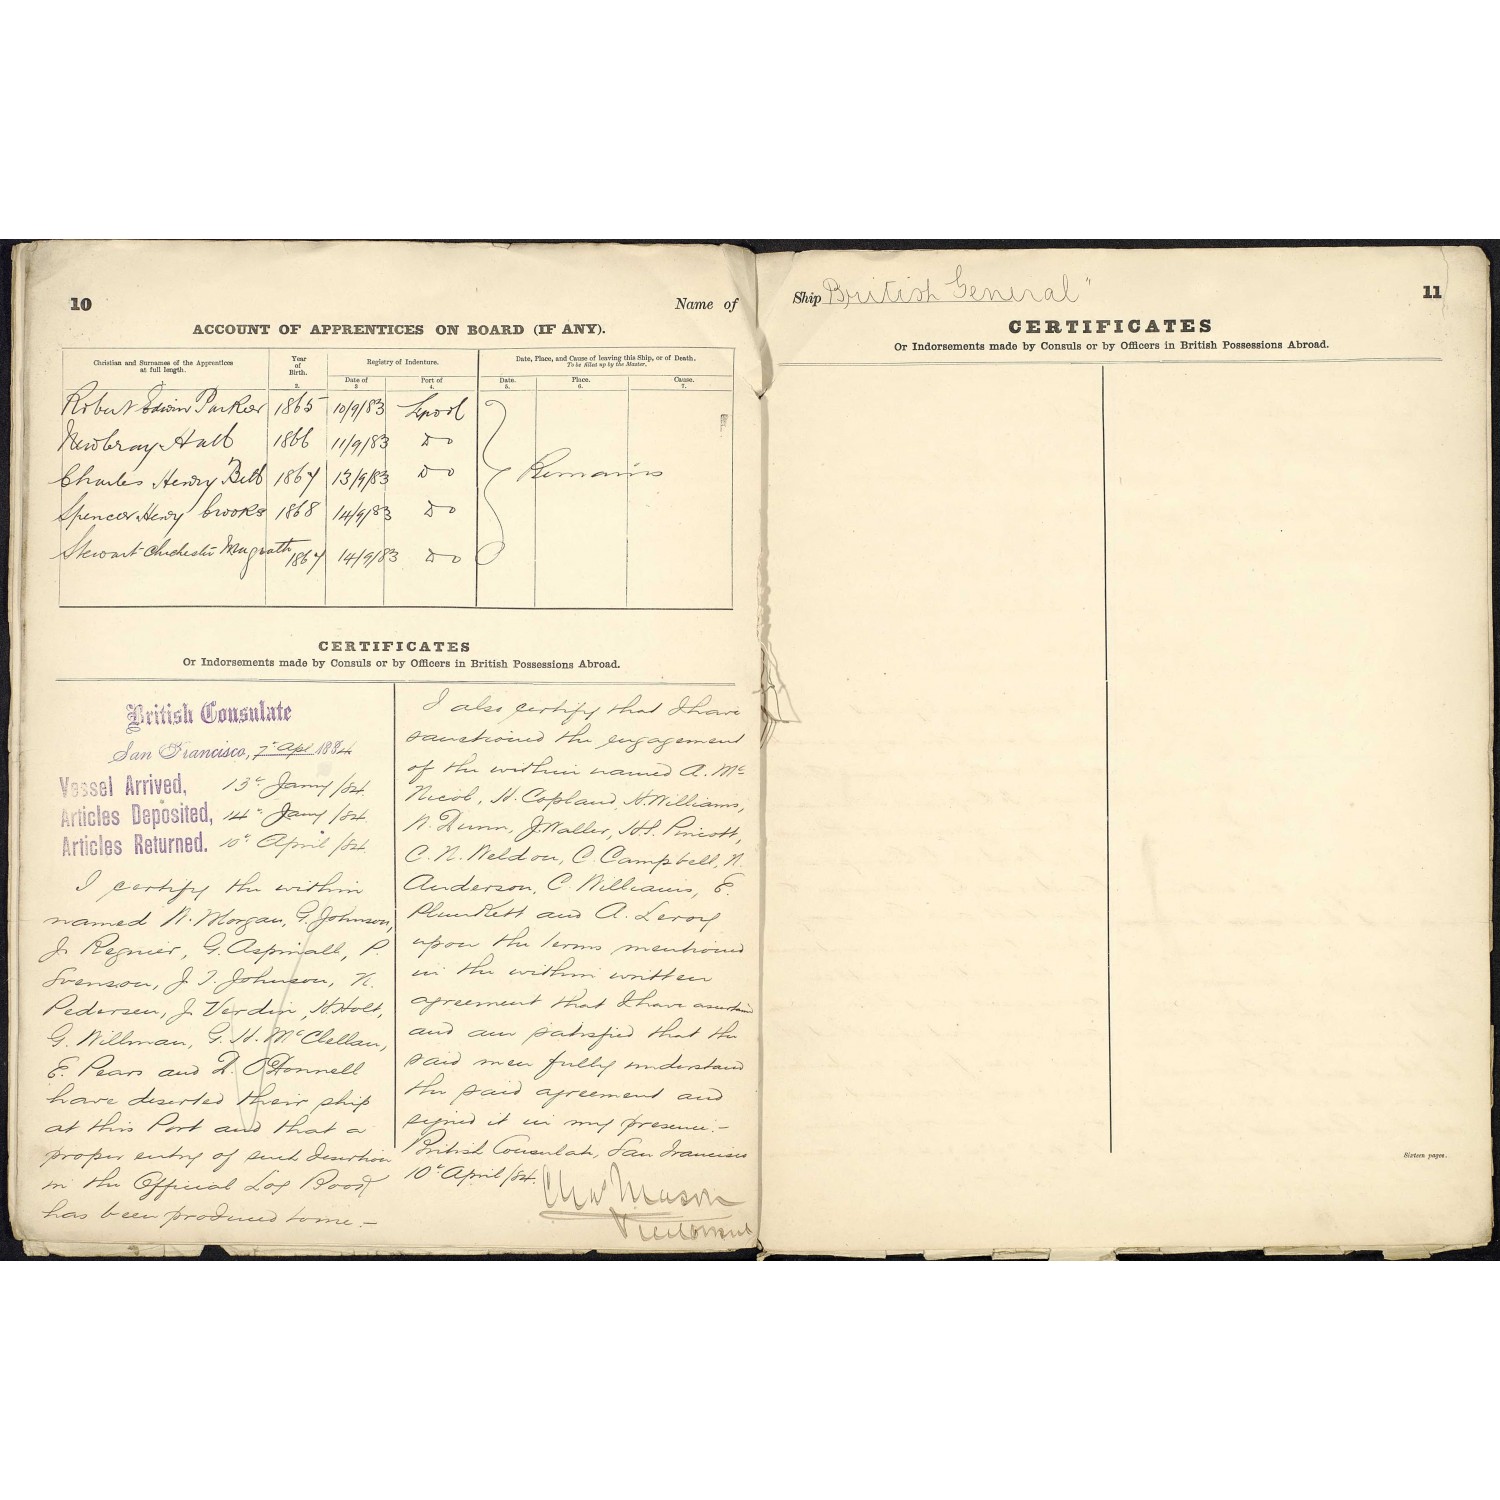 10
Name of
ACCOUNT OF APPRENTICES ON BOARD (IF ANY).
Christian and Surnames of the Apprentices at full length.
Year of Birth. 2.
Registry of Indenture.
Date of 3
Port of 4.
Date, Place, and Cause of leaving this Ship, or of Death.
To be filled up by the Master.
Date. 5.
Place. 6.
Cause. 7.
Robert Edwin Parker 1865 10/9/83 Lpool
Hall 1866 11/9/83 Do
Charles Henry Bell 1867 13/9/83 Do
Remains
Spencer Henry Crooks 1868 14/9/83 Do
Stewart Chichester Magrath 1867 14/9/83 Do
CERTIFICATES
Or Indorsements made by Consuls or by Officers in British Possessions Abroad.
British Consulate
San Francisco, 7th Apl 1884
Vessel Arrived, 13th Jany /84
Articles Deposited, 14th Jany /84
Articles Returned. 10th April /84
I certify the within
named N. Morgan, G. Johnson,
J. Regnier, G. Aspinall, P.
Svenson, J. T. Johnson, N.
Pedersen, J. Verdin, H. Holt,
G. Willman, G. H. McClellan,
E. Pears and D. O'Donnell
have deserted their ship
at this Port and that a
proper entry of such desertion
in the Official Log Book
has been produced to me.—
I also certify that I have
sanctioned the engagement
of the within named A. Mc
Nicol, H. Copland, H. Williams,
N. Dunn, J. Waller, H. S. Pincott,
C. N. Weldon, C. Campbell, N.
Anderson, C. Williams, E.
Plunkett and A. Leroy
upon the terms mentioned
in the within written
agreement that I have ascertain
and am satisfied that the
said men fully understand
the said agreement and
signed it in my presence.—
British Consulate, San Francisco
10th April /84.
Chas Mason
Vice Consul
Ship British General"
11
CERTIFICATES
Or Indorsements made by Consuls or by Officers in British Possessions Abroad.
Sixteen pages.